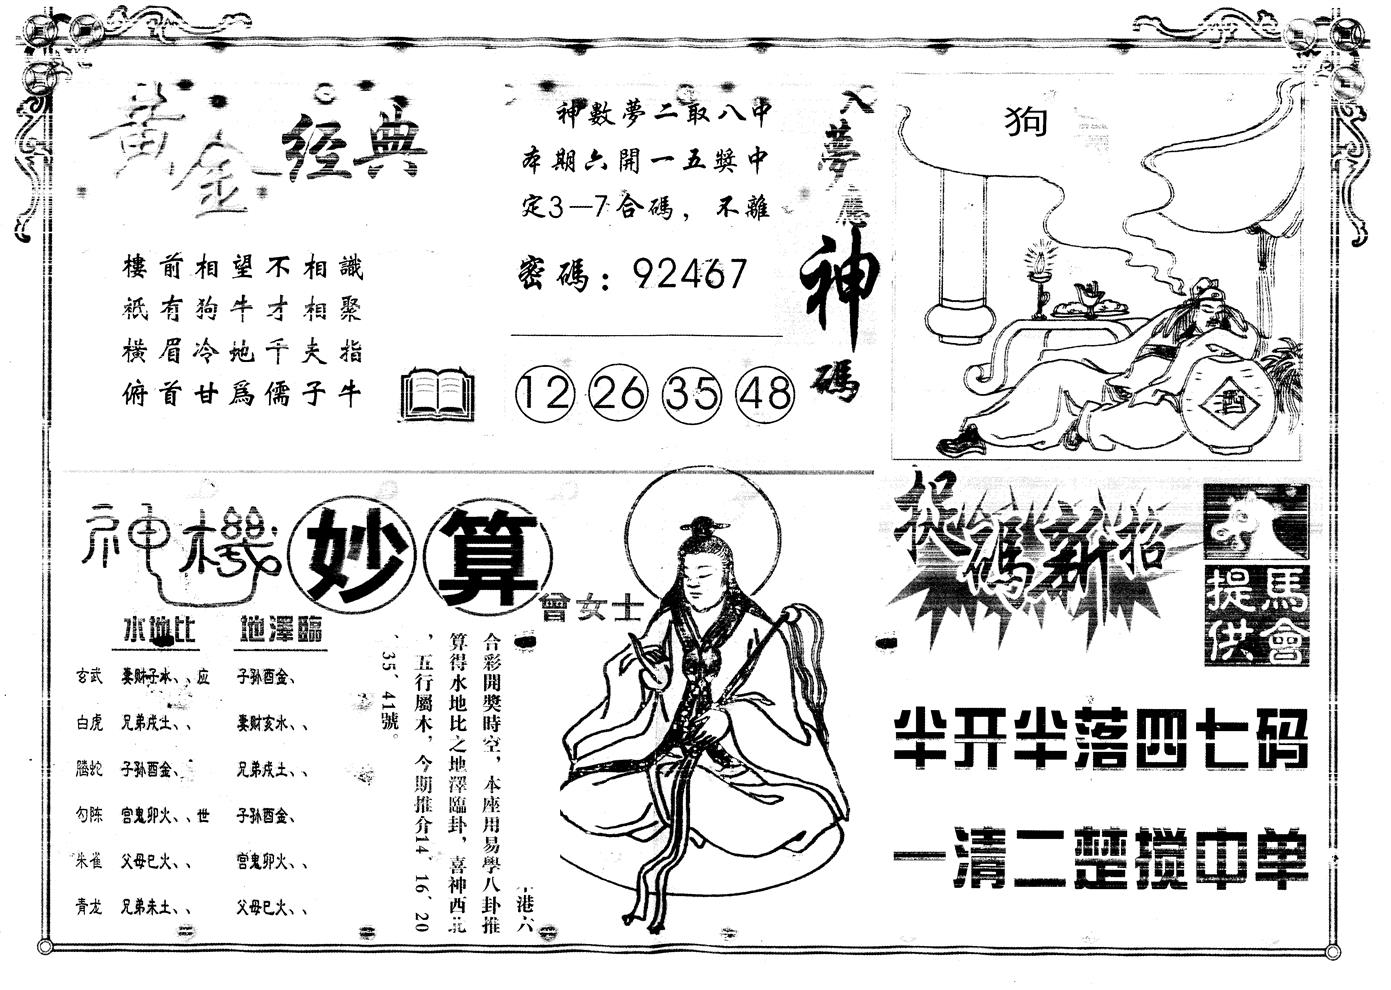 黃金經典
樓前相望不相識
祇有狗牛才相聚
橫眉冷地千夫指
俯首甘爲儒子牛
神數夢二取八中
本期六開一五獎中
定3—7合碼，不離
密碼：92467
12 26 35 48
八夢應神碼
狗
酒
神機妙算
曾女士
水地比 地澤臨
玄武 妻财子水、、应 子孙酉金、
白虎 兄弟戌土、、 妻财亥水、、
螣蛇 子孙酉金、 兄弟戌土、、
勾陈 官鬼卯火、、世 子孙酉金、
朱雀 父母巳火、、 官鬼卯火、、
青龙 兄弟未土、、 父母巳火、、
港六
合彩開獎時空，本座用易學八卦推
算得水地比之地澤臨卦，喜神西北
，五行屬木，今期推介14、16、20
、35、41號。
捉碼新招
馬會提供
半开半落四七码
一清二楚搅中单